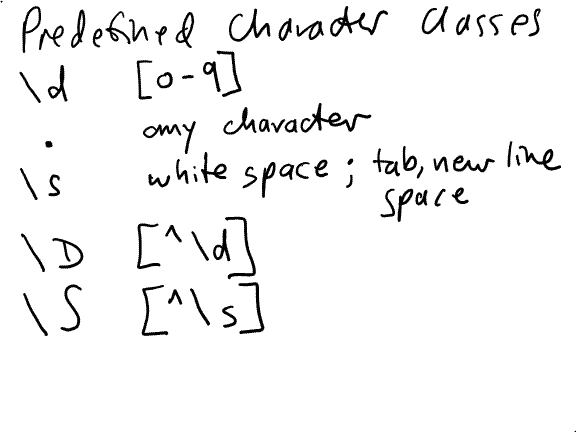 Predefined Character Classes
\d [0-9]
. any character
\s white space; tab, new line
space
\D [^\d]
\S [^\s]